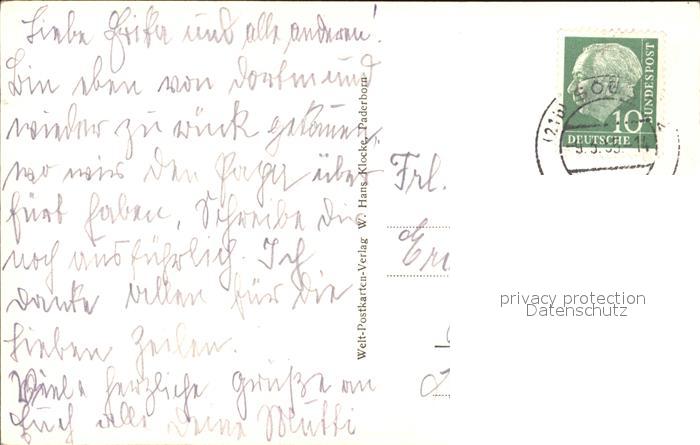 Liebe Erika und alle anderen!
Bin eben von Dortmund
wieder zu rück gekommen,
wo wir den Papa über
fürt haben, Schreibe dir
noch ausführlich. Ich
danke allen für die
lieben Zeilen.
Viele herzliche Grüße an
Euch alle Deine Mutti
Welt-Postkarten-Verlag W. Hans Klocke, Paderborn
Frl.
BUNDESPOST
10
DEUTSCHE
privacy protection
Datenschutz